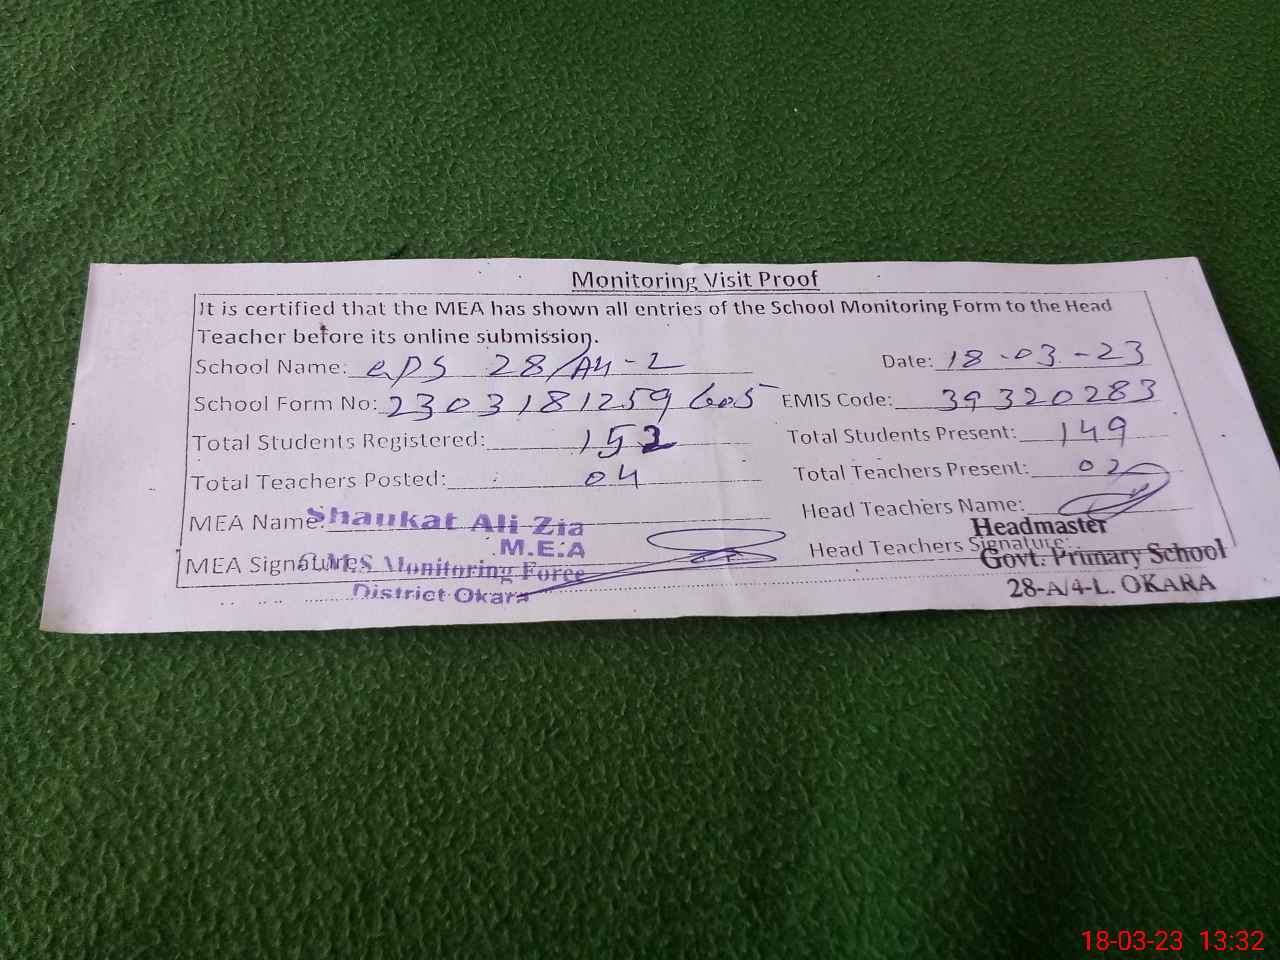 Monitoring Visit Proof
It is certified that the MEA has shown all entries of the School Monitoring Form to the Head
Teacher before its online submission.
School Name: GPS 28/A4-L Date: 18-03-23
School Form No: 2303181259605 EMIS Code: 39320283
Total Students Registered: 152 Total Students Present: 149
Total Teachers Posted: 04 Total Teachers Present: 02
MEA Name: Shaukat Ali Zia Head Teachers Name:
M.E.A Headmaster
MEA Signatures Monitoring Force Head Teachers Signature:
Govt. Primary School
District Okara 28-A/4-L. OKARA
18-03-23 13:32